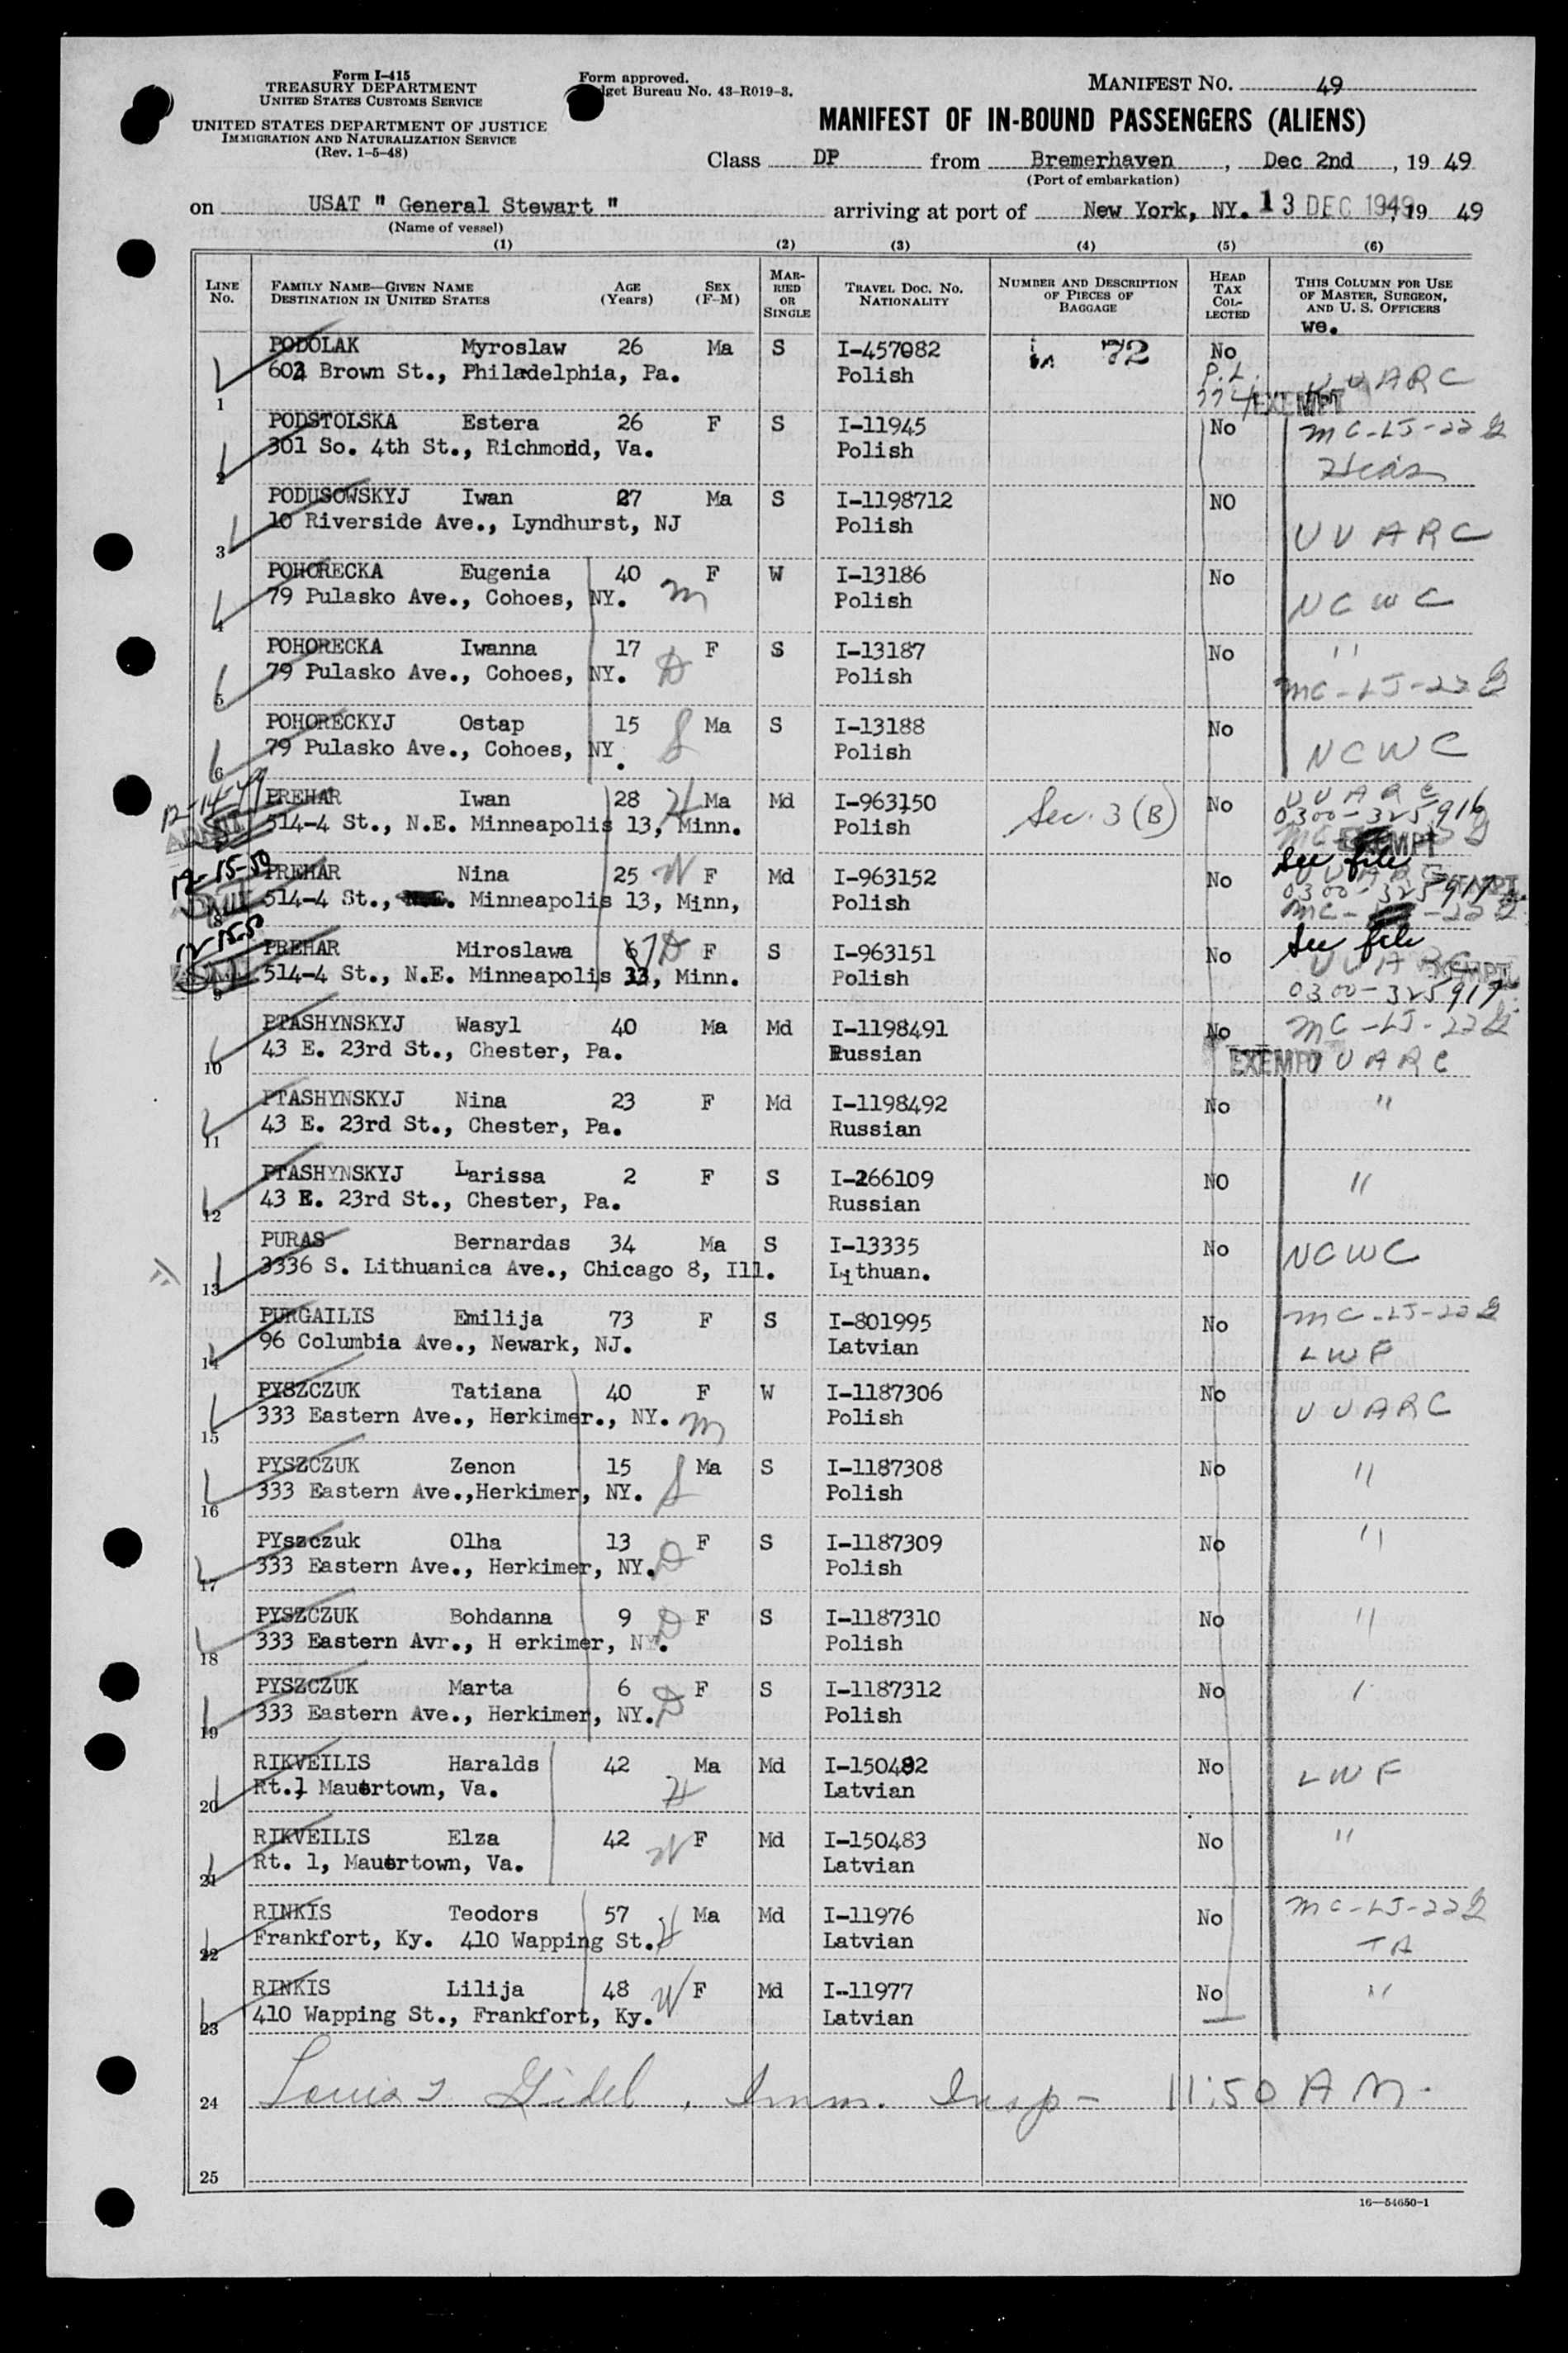 Form I-415
TREASURY DEPARTMENT
UNITED STATES CUSTOMS SERVICE
UNITED STATES DEPARTMENT OF JUSTICE
IMMIGRATION AND NATURALIZATION SERVICE
(Rev. 1-5-48)
Form approved.
Budget Bureau No. 43-R019-3.
MANIFEST NO. 49
MANIFEST OF IN-BOUND PASSENGERS (ALIENS)
Class DP from Bremerhaven, Dec 2nd, 19 49
(Port of embarkation)
on USAT " General Stewart " arriving at port of New York, NY. 13 DEC 1949, 19 49
(Name of vessel)
(1) (2) (3) (4) (5) (6)
LINE NO. FAMILY NAME—GIVEN NAME DESTINATION IN UNITED STATES AGE (Years) SEX (F-M) MARRIED OR SINGLE TRAVEL DOC. NO. NATIONALITY NUMBER AND DESCRIPTION OF PIECES OF BAGGAGE HEAD TAX COLLECTED THIS COLUMN FOR USE OF MASTER, SURGEON, AND U. S. OFFICERS
we.
PODOLAK Myroslaw 26 Ma S I-457082 72 No
602 Brown St., Philadelphia, Pa. Polish P.L. UUARC
1 774 EXEMPT
PODSTOLSKA Estera 26 F S I-11945 No MC-LJ-22
301 So. 4th St., Richmond, Va. Polish Hias
2
PODUSOWSKYJ Iwan 27 Ma S I-1198712 NO
10 Riverside Ave., Lyndhurst, NJ Polish UUARC
3
POHORECKA Eugenia 40 F W I-13186 No
79 Pulasko Ave., Cohoes, NY. m Polish NCWC
4
POHORECKA Iwanna 17 F S I-13187 No "
79 Pulasko Ave., Cohoes, NY. D Polish MC-LJ-22
5
POHORECKYJ Ostap 15 S Ma S I-13188 No
79 Pulasko Ave., Cohoes, NY. Polish NCWC
6
12-14-49 PREHAR Iwan 28 H Ma Md I-963150 Sec. 3 (B) No UUARC
ADMIT 514-4 St., N.E. Minneapolis 13, Minn. Polish 0300-325916
EXEMPT
12-15-50 PREHAR Nina 25 W F Md I-963152 No See file
8 514-4 St., N.E. Minneapolis 13, Minn, Polish 0300-325917
12-15-50 PREHAR Miroslawa 6 7 D F S I-963151 No See file
514-4 St., N.E. Minneapolis 13, Minn. Polish UUARC EXEMPT
9 0300-325917
PTASHYNSKYJ Wasyl 40 Ma Md I-1198491 No MC-LJ-22
43 E. 23rd St., Chester, Pa. Russian EXEMPT UUARC
10
PTASHYNSKYJ Nina 23 F Md I-1198492 No "
43 E. 23rd St., Chester, Pa. Russian
11
PTASHYNSKYJ Larissa 2 F S I-266109 NO "
43 E. 23rd St., Chester, Pa. Russian
12
PURAS Bernardas 34 Ma S I-13335 No NCWC
3336 S. Lithuanica Ave., Chicago 8, Ill. Lithuan.
13
PURGAILIS Emilija 73 F S I-801995 No MC-LJ-22
96 Columbia Ave., Newark, NJ. Latvian LWF
14
PYSZCZUK Tatiana 40 F W I-1187306 No UUARC
333 Eastern Ave., Herkimer., NY. m Polish
15
PYSZCZUK Zenon 15 S Ma S I-1187308 No "
333 Eastern Ave.,Herkimer, NY. Polish
16
PYszczuk Olha 13 F S I-1187309 No "
333 Eastern Ave., Herkimer, NY. D Polish
17
PYSZCZUK Bohdanna 9 D F S I-1187310 No "
333 Eastern Avr., H erkimer, NY. Polish
18
PYSZCZUK Marta 6 F S I-1187312 No
333 Eastern Ave., Herkimer, NY. D Polish
19
RIKVEILIS Haralds 42 Ma Md I-150482 No LWF
Rt.1 Mauertown, Va. H Latvian
20
RIKVEILIS Elza 42 W F Md I-150483 No "
Rt. 1, Mauertown, Va. Latvian
21
RINKIS Teodors 57 H Ma Md I-11976 No MC-LJ-22
Frankfort, Ky. 410 Wapping St. Latvian TA
22
RINKIS Lilija 48 W F Md I-11977 No "
410 Wapping St., Frankfort, Ky. Latvian
23
24 Louis Gidel, Imm. Insp- 11:50 AM.
25
16—54650-1